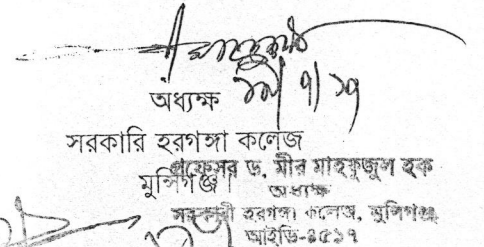 অধ্যক্ষ
সরকারি হরগঙ্গা কলেজ
মুন্সিগঞ্জ।
প্রফেসর ড. মীর মাহফুজুল হক
অধ্যক্ষ
সরকারী হরগঙ্গা কলেজ, মুন্সিগঞ্জ
আইডি-৪৫১৭